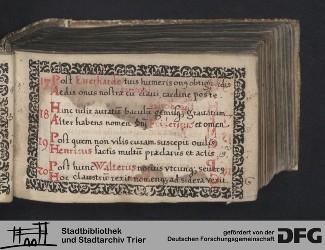 17 Post Everharde tuis humeris onus
Aedis onus nostræ cu claui cardine poste
18 Hinc tulit auratum baculum gemmisq grauatum
Alter habens nomen et omen
19 Post quem non vilis curam suscepit ouilis
Henricus factis multum præclarus et actis
20 Post hunc Walterus
Hoc claustrum rexit nomenq ad sidera vexit
Stadtbibliothek
und Stadtarchiv Trier
gefördert von der
Deutschen Forschungsgemeinschaft
DFG